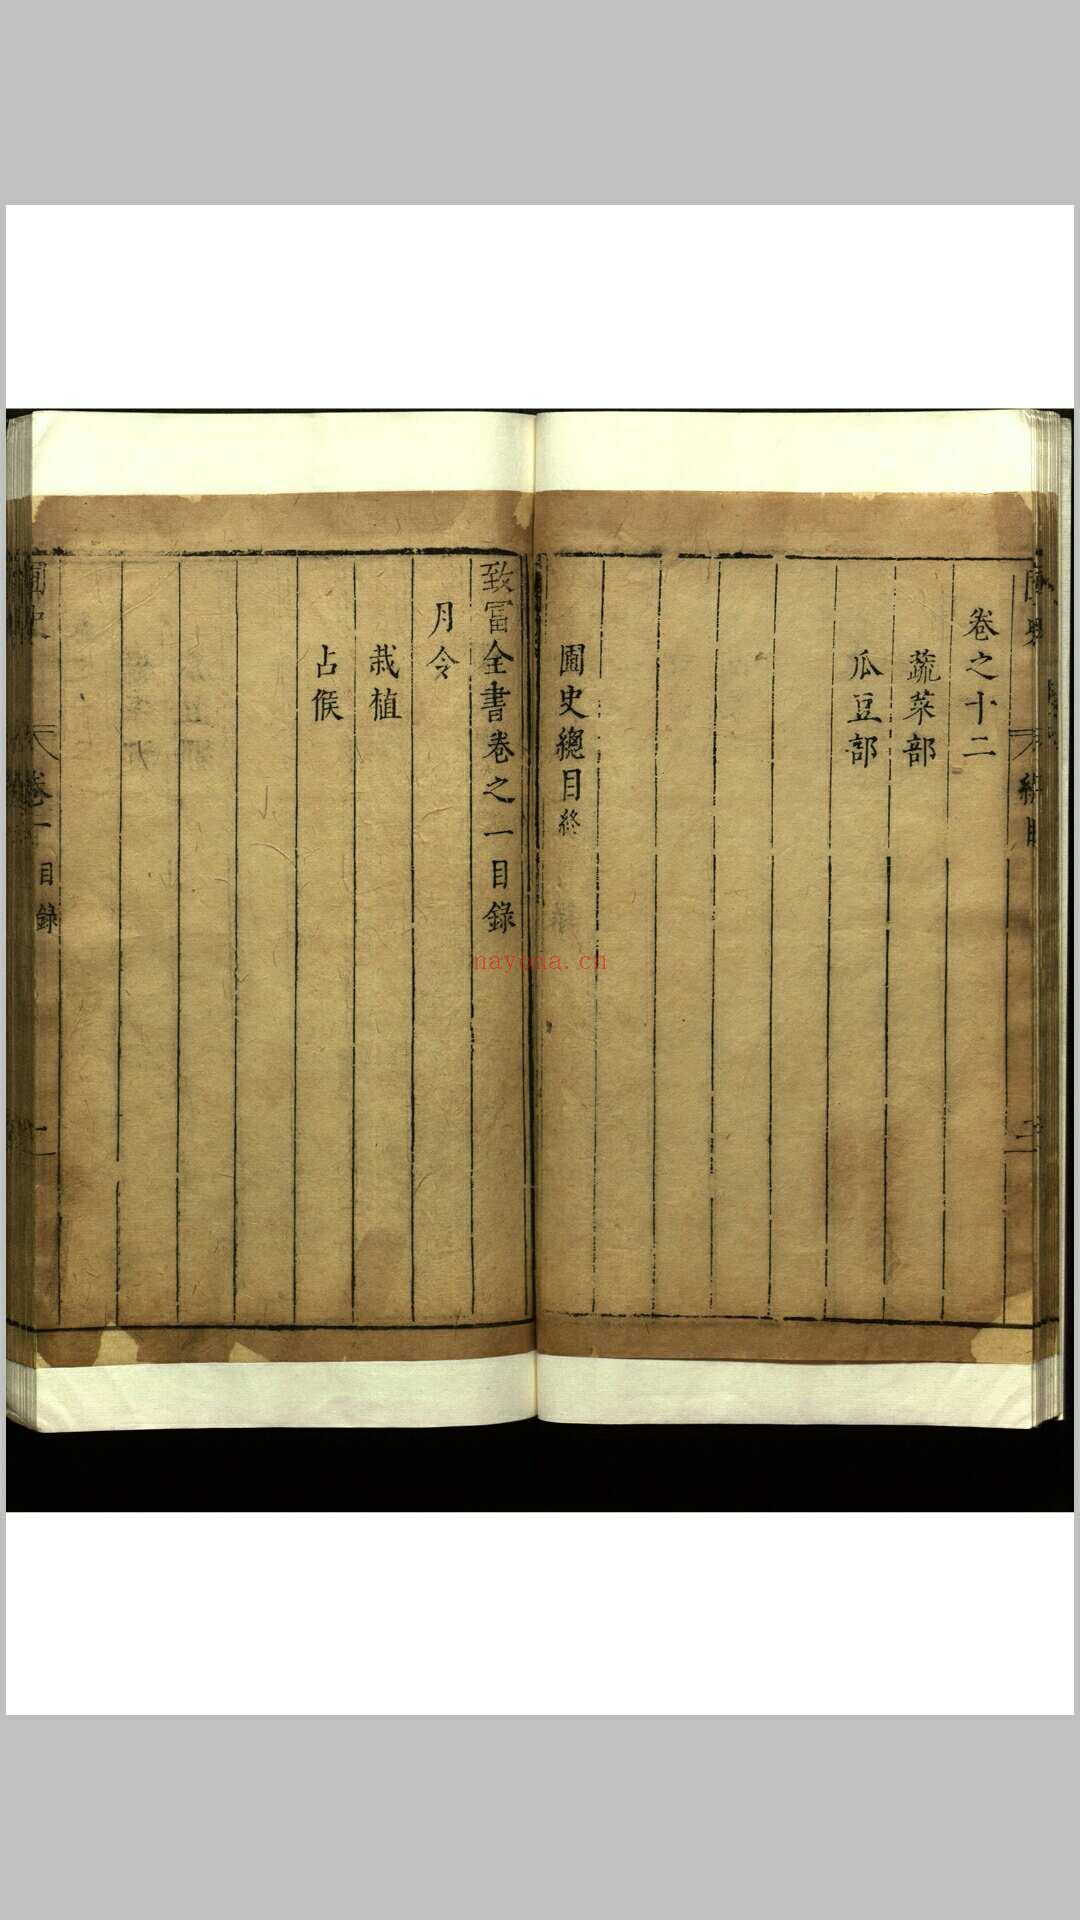 卷之十二
蔬菜部
瓜豆部
圃史總目終
致富全書卷之一目錄
月令
栽植
占候
卷一 目錄
nayona.cn